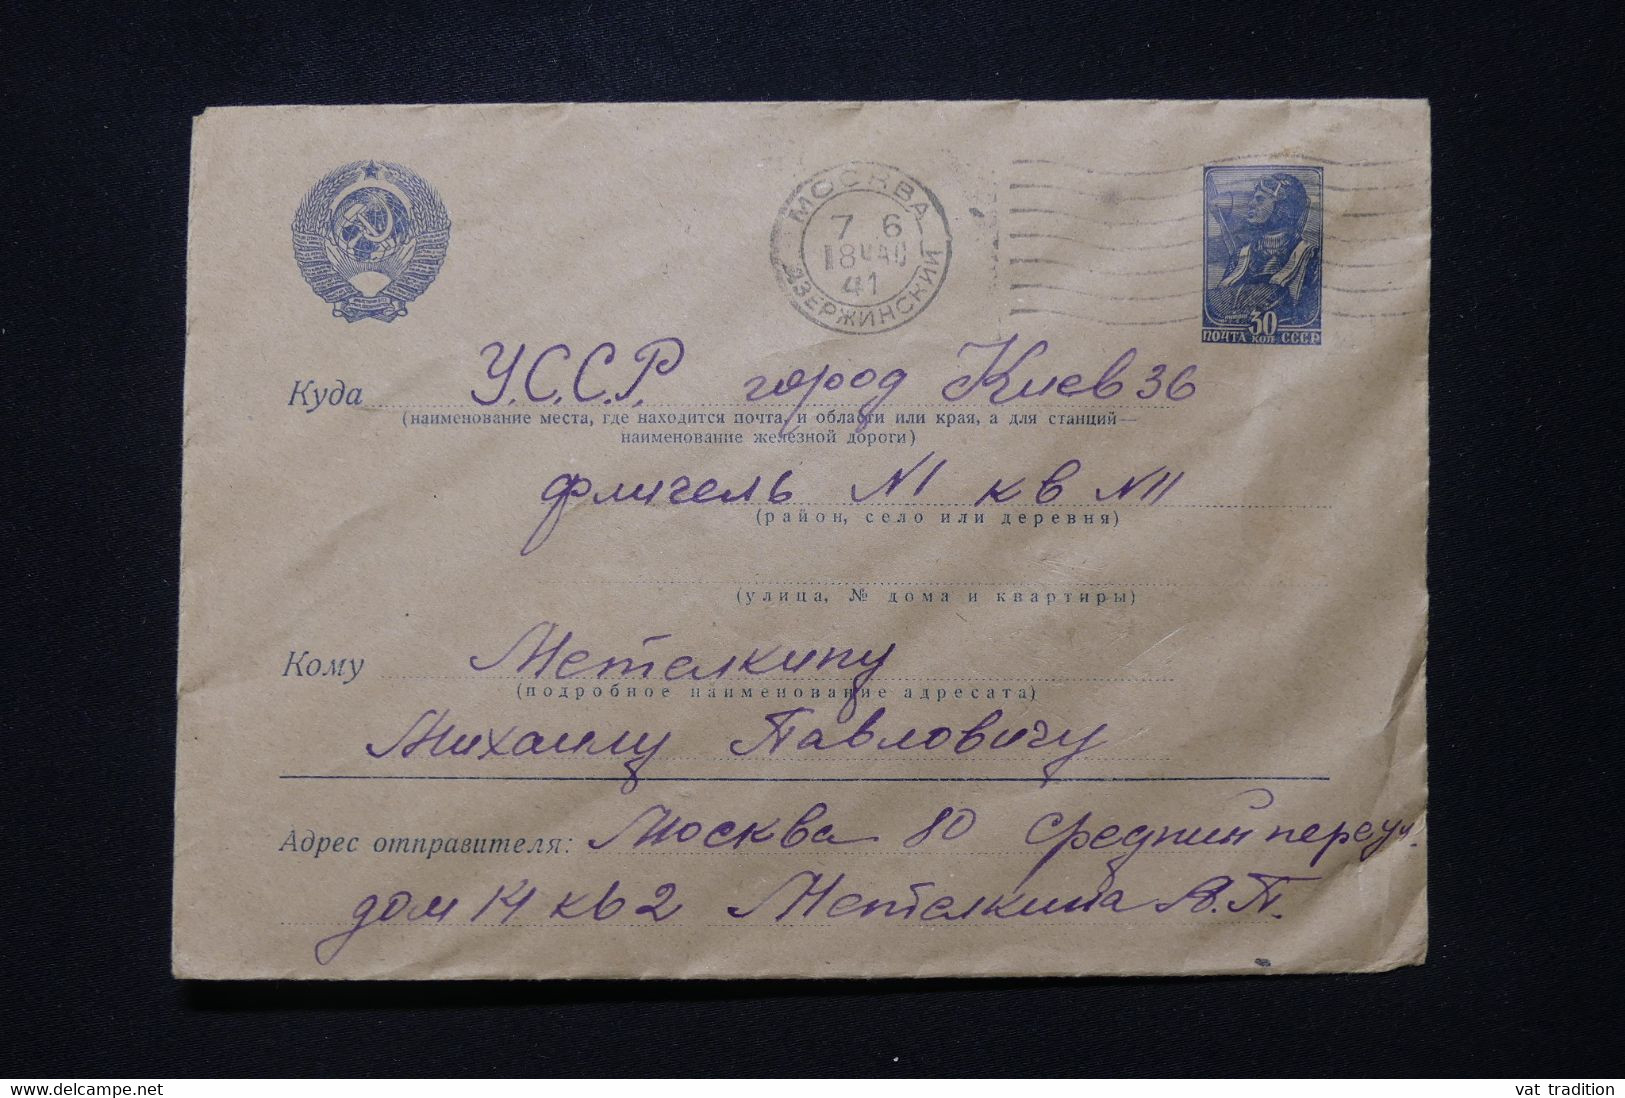 МОСКВА
7 6
41
ДЗЕРЖИНСКИЙ
30
ПОЧТА КОП СССР
Куда У.С.С.Р. город Киев 36
(наименование места, где находится почта, и области или края, а для станций—
наименование железной дороги)
флигель N1 кв N11
(район, село или деревня)
(улица, № дома и квартиры)
Кому Метелкину
(подробное наименование адресата)
Михаилу Павловичу
Адрес отправителя: Москва 80 Средний
дом 14 кв 2 Метелкина А.П.
delcampe.net
vat tradition